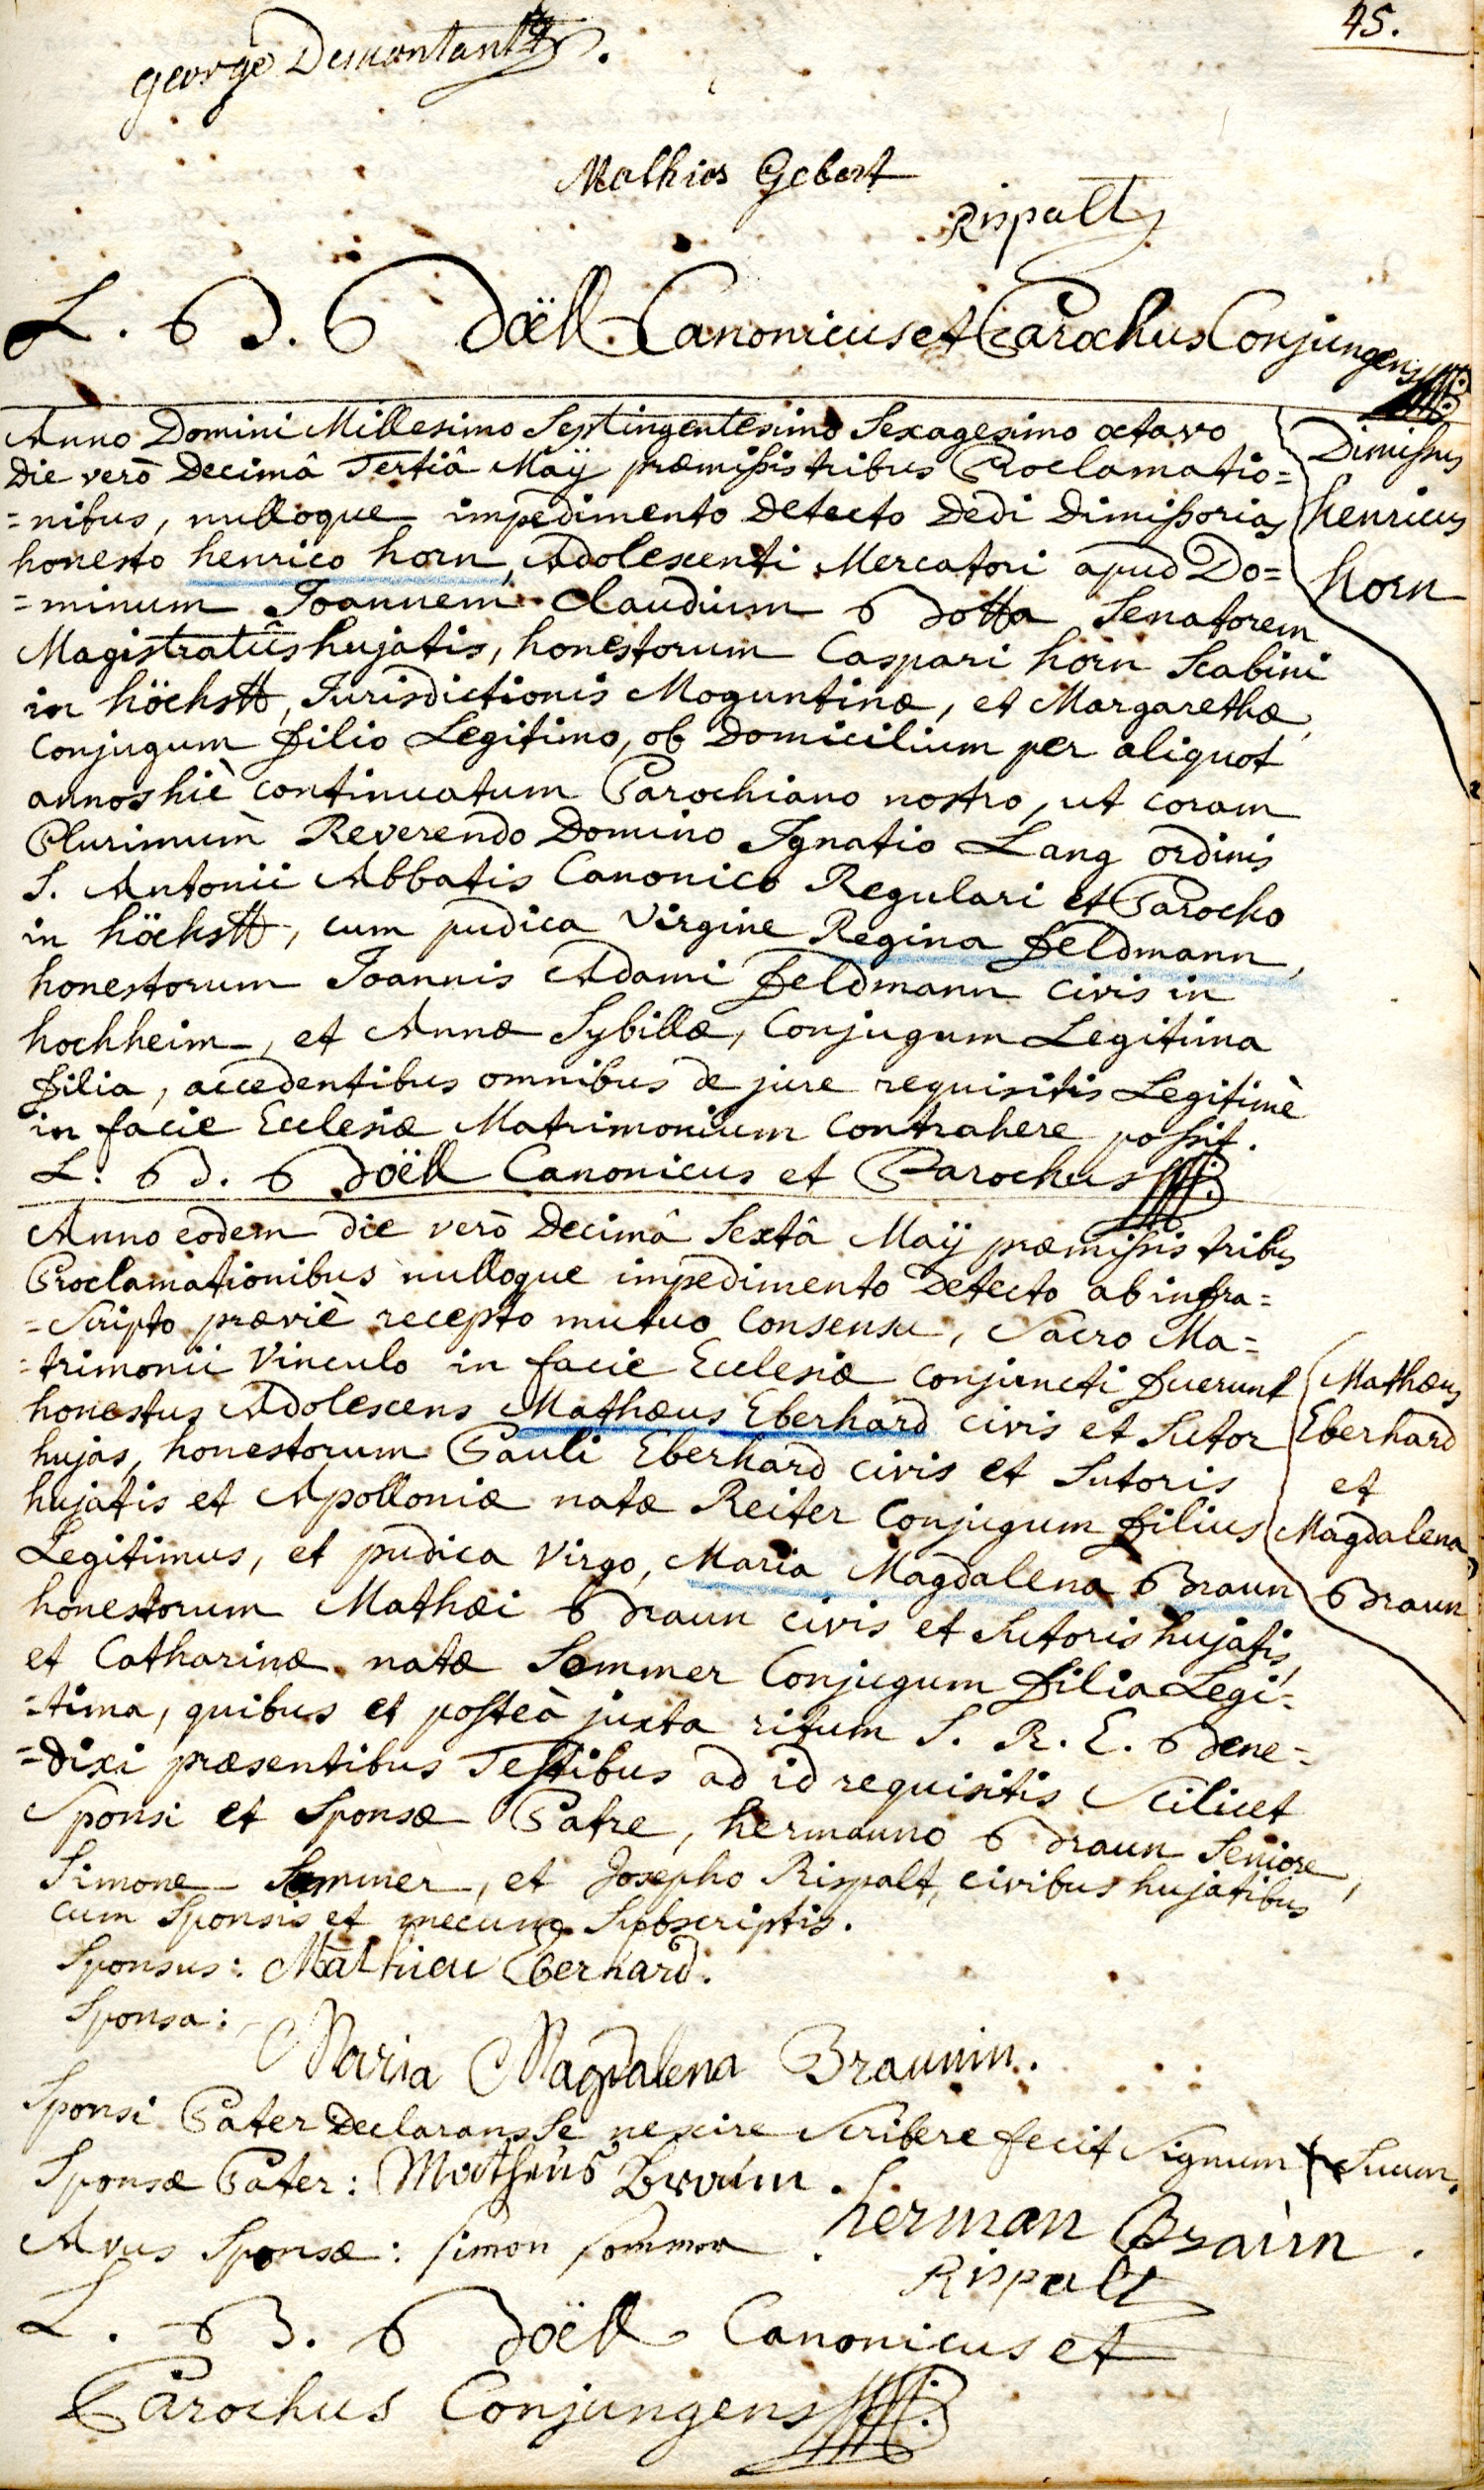 45.
George Demontant
Mathias Gebert
Rispalt
L. B. Böell Canonicus et Parochus Conjungens
Anno Domini Millesimo Septingentesimo Sexagesimo octavo
Die verò Decimâ Tertiâ Maÿ præmissis tribus Proclamatio=
=nibus, nulloque impedimento Detecto Dedi Dimissorias
honesto henrico horn, Adolescenti Mercatori apud Do=
=minum Joannem Claudium Botta Senatorem
Magistratûs hujatis, honestorum Caspari horn Scabini
in höchstt, Jurisdictionis Moguntinæ, et Margarethæ,
Conjugum filio Legitimo, ob Domicilium per aliquot
annos hiè continuatum Parochiano nostro, ut coram
Plurimum Reverendo Domino Ignatio Lang ordinis
S. Antonii Abbatis Canonico Regulari et Parocho
in höchstt, cum pudica Virgine Regina feldmann,
honestorum Joannis Adami feldmann Civis in
hochheim, et Annæ Sybillæ, Conjugum Legitima
filia, accedentibus omnibus de jure requisitis Legitimè
in facie Ecclesiæ Matrimonium Contrahere possit.
L. B. Böell Canonicus et Parochus
Dimissus
henricus
horn
Anno eodem die verò Decimâ Sextâ Maÿ præmissis tribus
Proclamationibus nulloque impedimento Detecto ab infra=
=Scripto præviè recepto mutuo Consensu, Sacro Ma=
=trimonii Vinculo in facie Ecclesiæ conjuncti fuerunt
honestus Adolescens Mathæus Eberhard civis et Sutor
hujas, honestorum Pauli Eberhard civis et Sutoris
hujatis et Apolloniæ natæ Reiter Conjugum filius
Legitimus, et pudica Virgo, Maria Magdalena Braun
honestorum Mathæi Braun civis et Sutoris hujatis,
et Catharinæ natæ Sommer Conjugum filia Legi=
=tima, quibus et posteà juxta ritum S. R. E. Bene=
=dixi præsentibus Testibus ad id requisitis Scilicet
Sponsi et Sponsæ Patre, hermanno Braun Seniore,
Simone Sommer, et Josepho Rispalt, civibus hujatibus
cum Sponsis et mecum Subscriptis.
Mathæus
Eberhard
et
Magdalena
Braun
Sponsus: Mathieu Eberhard.
Sponsa:
Maria Magdalena Braunin.
Sponsi Pater Declarans Se nescire Scribere fecit Signum + Suum.
Sponsæ Pater: Matheus Braun.
herman Braun.
Avus Sponsæ: simon sommer
Rispalt
L. B. Böell Canonicus et
Parochus Conjungens